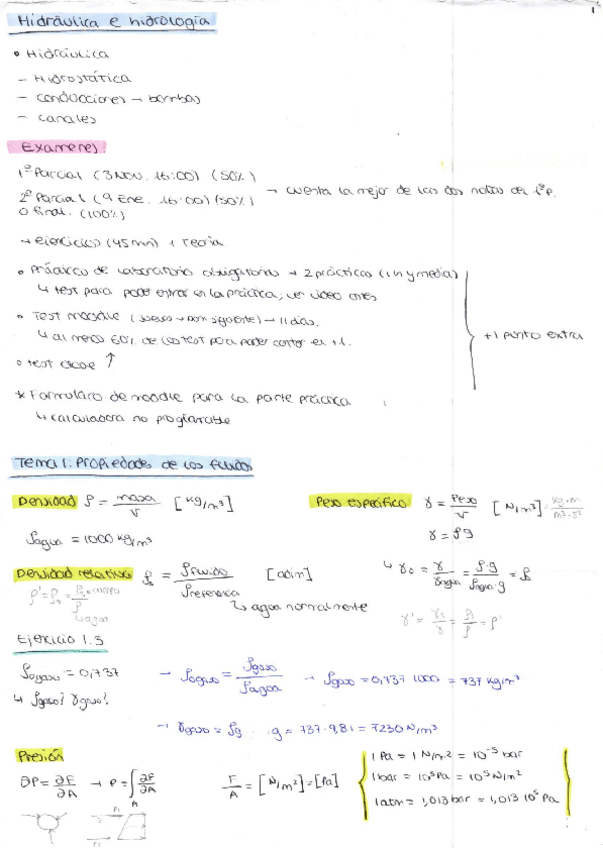 Hidráulica e hidrología
• Hidráulica
- Hidrostática
- conducciones → bombas
- canales
Exámenes:
1º Parcial (3 Nov. 16:00) (50%)
2º Parcial (9 Ene. 16:00) (50%) → cuenta la mejor de las dos notas del 1ºP.
o final. (100%)
→ ejercicios (45mn) + teoría
• Prácticas de laboratorio obligatorias → 2 prácticas (1h y media)
↳ test para poder entrar en la práctica, ver video antes
• Test moodle → 11 días.
↳ al menos 60% de los test para poder contar el +1.
+1 punto extra
• test clase ↑
* Formulario de moodle para la parte práctica
↳ calculadora no programable
Tema 1: Propiedades de los fluidos
Densidad ρ = masa/V [kg/m³]
Peso específico γ = Peso/V [N/m³] = kg·m/m³·s²
ρagua = 1000 kg/m³
γ = ρg
Densidad relativa ρr = ρfluido/ρreferencia [adim]
↳ agua normalmente
↳ γr = γ/γagua = ρ·g/ρagua·g = ρr
↳ agua
Ejercicio 1.3
ρgaso = 0,737 → ρgaso = ρgaso/ρagua → ρgaso = 0,737·1000 = 737 kg/m³
↳ ρgaso? γgaso?
→ γgaso = ρg · g = 737·9,81 = 7230 N/m³
Presión
∂P = ∂F/∂A → P = ∫A ∂F/∂A
F/A = [N/m²] = [Pa]
1 Pa = 1 N/m² = 10⁻⁵ bar
1 bar = 10⁵ Pa = 10⁵ N/m²
1 atm = 1,013 bar = 1,013 10⁵ Pa